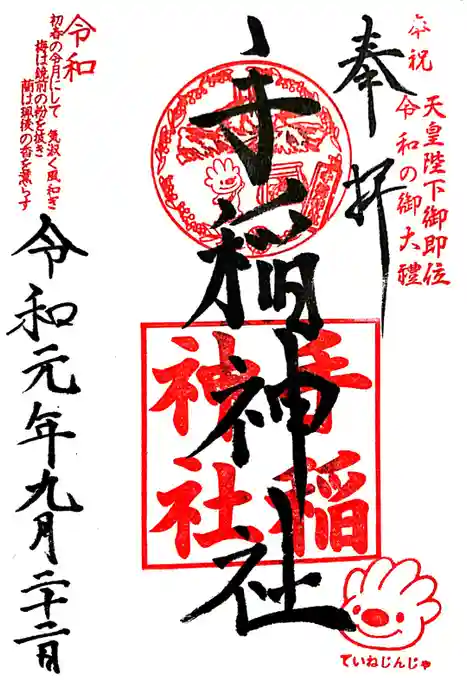 奉祝
天皇陛下御即位
令和の御大禮
奉拝
手稲神社
手稲
神社
ていねじんじゃ
令和
初春の令月にして 気淑く風和ぎ
梅は鏡前の粉を披き
蘭は珮後の香を薫らす
令和元年九月二十二日